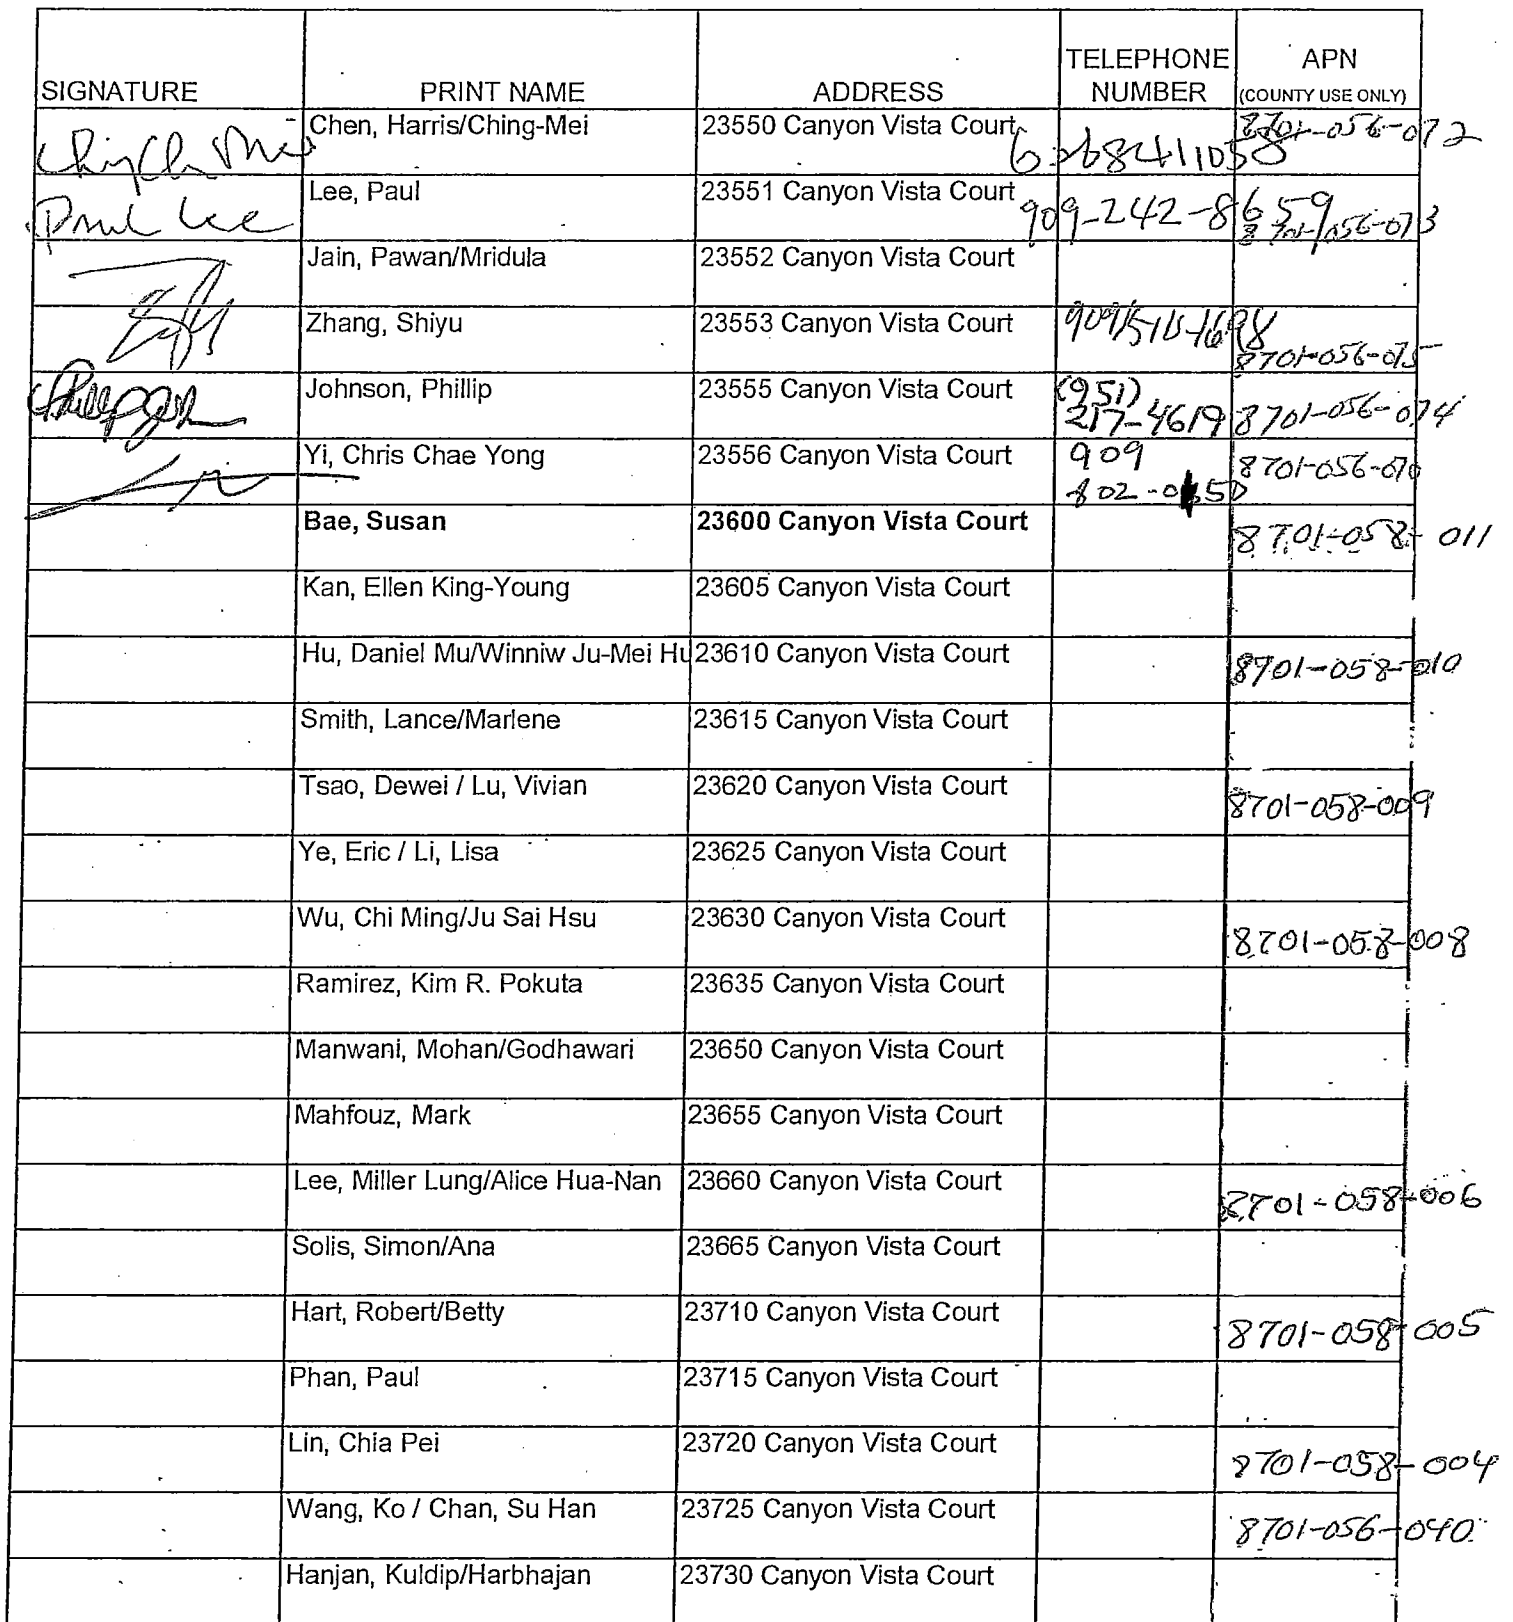 SIGNATURE PRINT NAME ADDRESS TELEPHONE NUMBER APN (COUNTY USE ONLY)
Chen, Harris/Ching-Mei 23550 Canyon Vista Court 6268411058 8701-056-072
Paul Lee Lee, Paul 23551 Canyon Vista Court 909-242-8659 8701-056-073
Jain, Pawan/Mridula 23552 Canyon Vista Court
Zhang, Shiyu 23553 Canyon Vista Court 8701-056-075
Johnson, Phillip 23555 Canyon Vista Court (951) 217-4619 8701-056-074
Yi, Chris Chae Yong 23556 Canyon Vista Court 909 8701-056-070
Bae, Susan 23600 Canyon Vista Court 8701-058-011
Kan, Ellen King-Young 23605 Canyon Vista Court
Hu, Daniel Mu/Winniw Ju-Mei Hu 23610 Canyon Vista Court 8701-058-010
Smith, Lance/Marlene 23615 Canyon Vista Court
Tsao, Dewei / Lu, Vivian 23620 Canyon Vista Court 8701-058-009
Ye, Eric / Li, Lisa 23625 Canyon Vista Court
Wu, Chi Ming/Ju Sai Hsu 23630 Canyon Vista Court 8701-058-008
Ramirez, Kim R. Pokuta 23635 Canyon Vista Court
Manwani, Mohan/Godhawari 23650 Canyon Vista Court
Mahfouz, Mark 23655 Canyon Vista Court
Lee, Miller Lung/Alice Hua-Nan 23660 Canyon Vista Court 8701-058-006
Solis, Simon/Ana 23665 Canyon Vista Court
Hart, Robert/Betty 23710 Canyon Vista Court 8701-058-005
Phan, Paul 23715 Canyon Vista Court
Lin, Chia Pei 23720 Canyon Vista Court 8701-058-004
Wang, Ko / Chan, Su Han 23725 Canyon Vista Court 8701-056-040
Hanjan, Kuldip/Harbhajan 23730 Canyon Vista Court